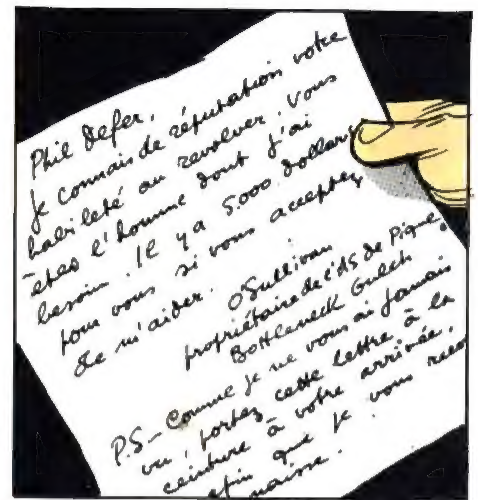 Phil Defer,
Je connais de réputation votre
habileté au revolver. Vous
êtes l'homme dont j'ai
besoin. Il y a 5.000 dollars
pour vous si vous acceptez
de m'aider.
O'Sullivan
propriétaire de l'AS de Pique.
Bottleneck Gulch
P.S - Comme je ne vous ai jamais
vu, portez cette lettre à la
ceinture à votre arrivée,
afin que je vous recon
naisse.